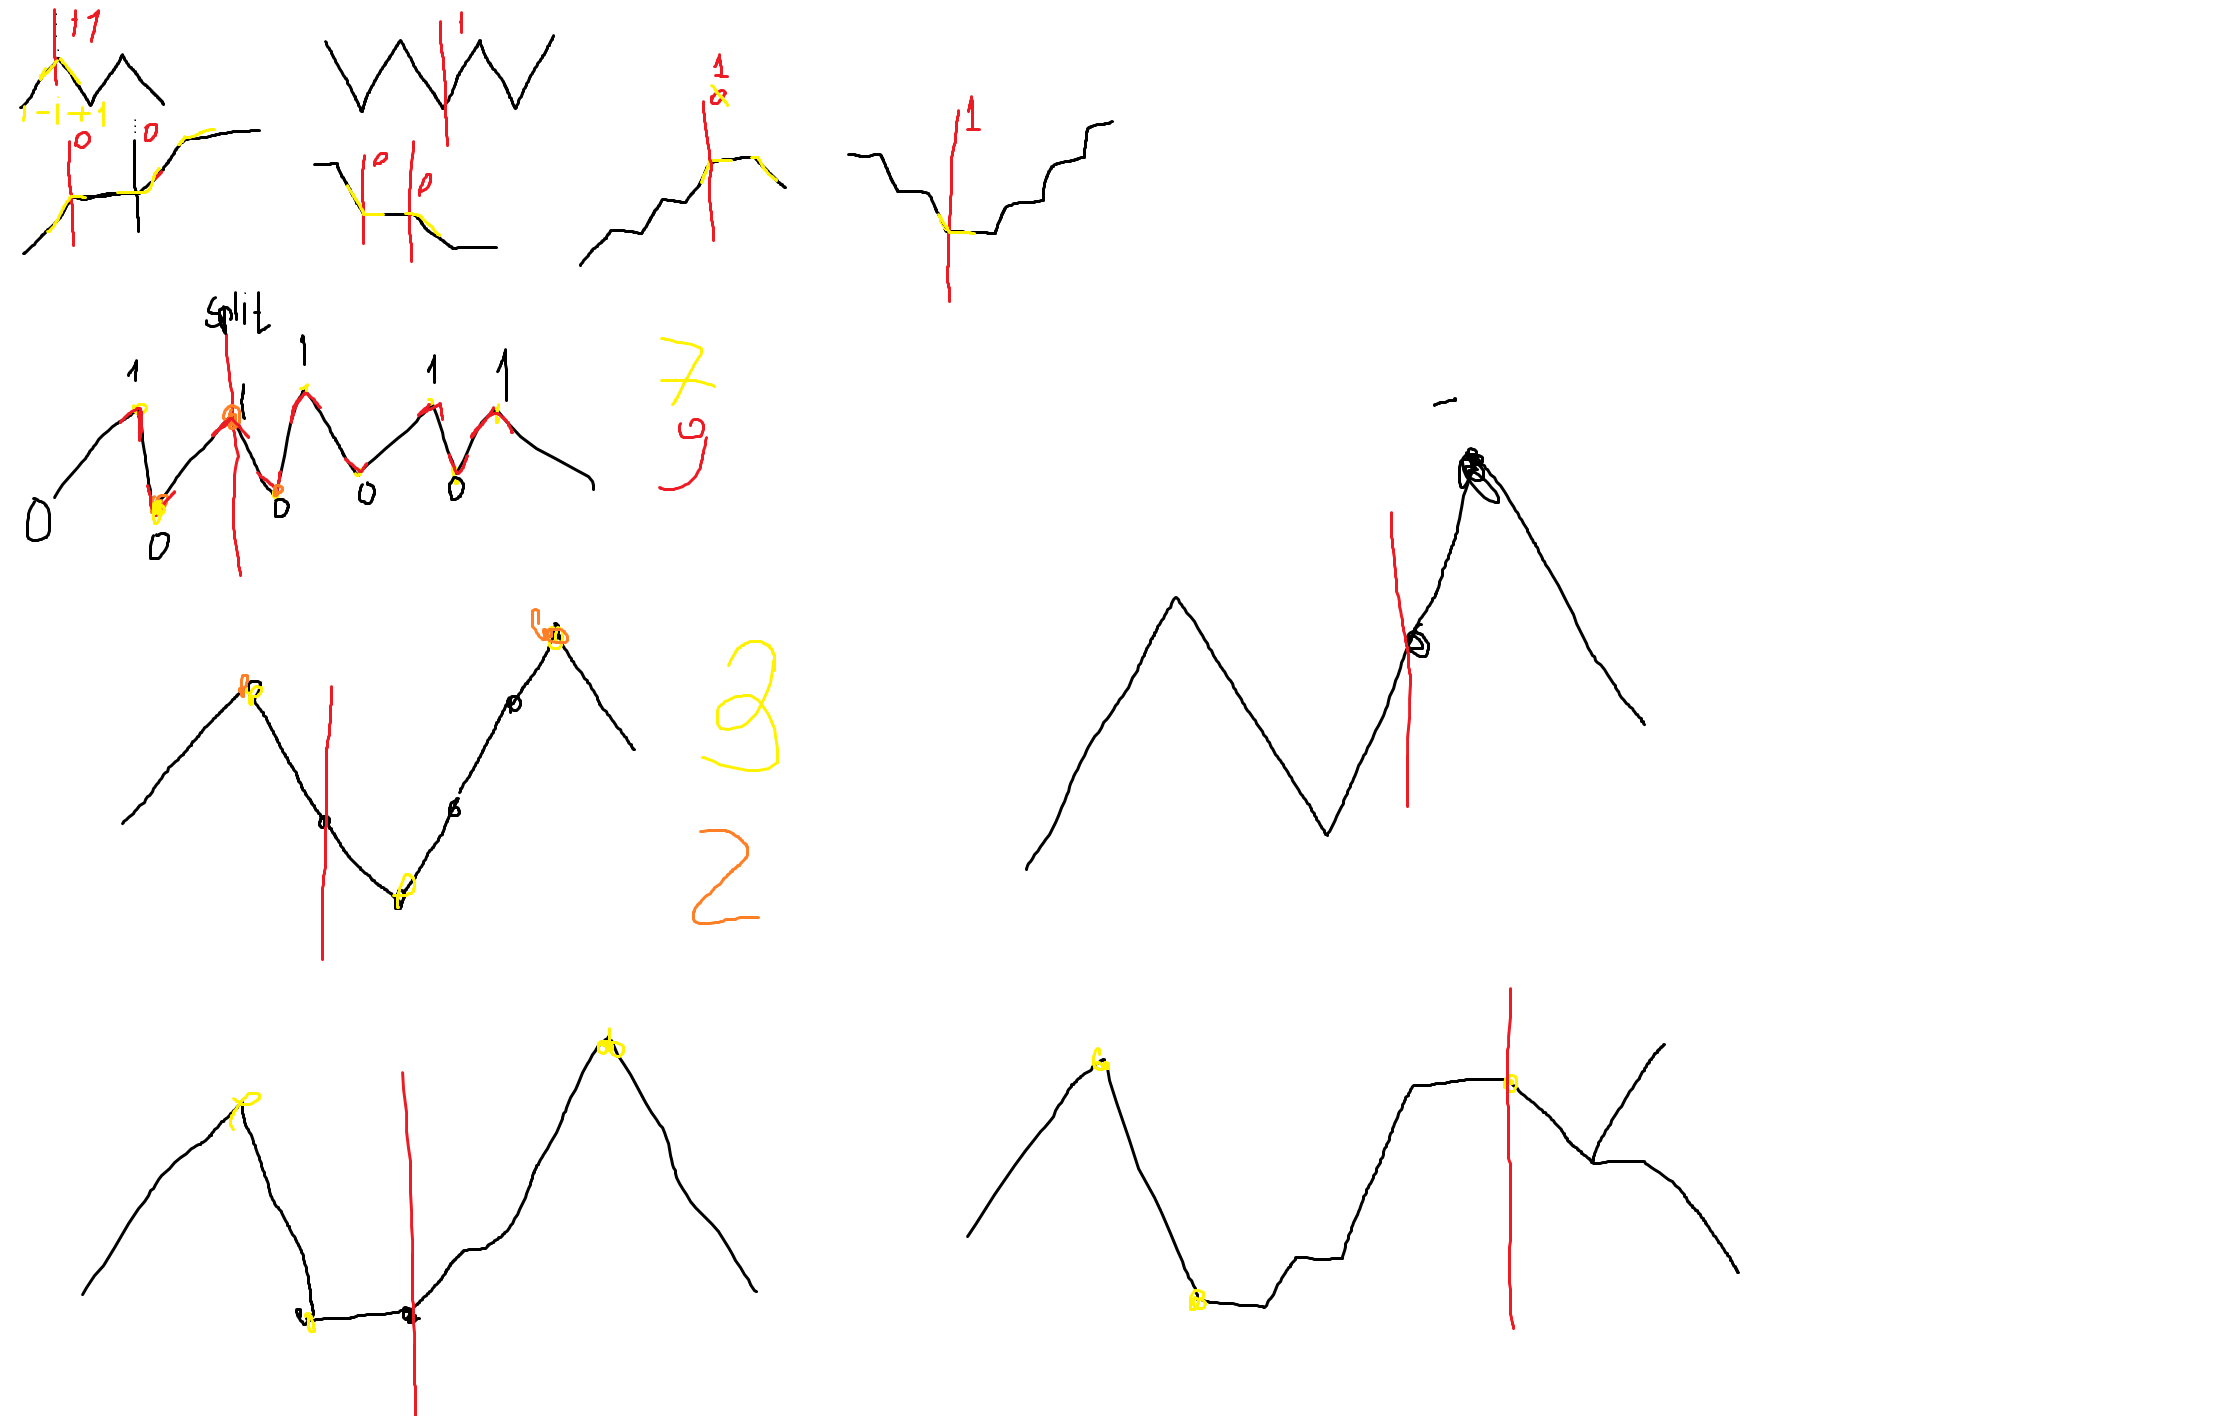 +1
1
1
1 - 1 + 1
0 0
0
0
1
split
1 1 1 1 1
0 0 0 0 0
7
9
3
2